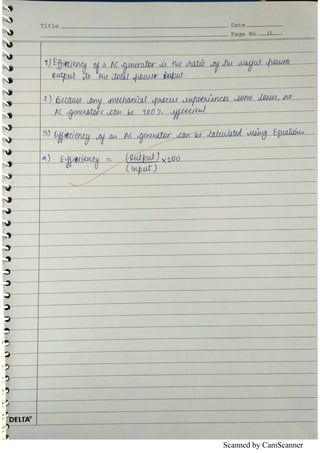 Title Date
Page No. 11
1) Efficiency of a AC generator is the ratio of the useful power
output to the total power input
2) Because any mechanical process experiences some losses, no
AC generators can be 100% efficient
3) Efficiency of an AC generator can be calculated using Equation
4) Efficiency = (Output) x 100
(Input)
DELTA®
Scanned by CamScanner